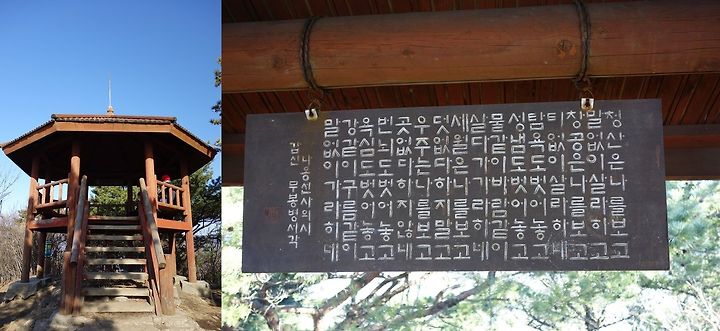 청산은나를보고
말없이살라하고
창공은나를보고
티없이살라하네
탐욕도벗어놓고
성냄도벗어놓고
물같이바람같이
살다가가라하네
세월은나를보고
덧없다하지말고
우주는나를보고
곳없다하지않네
번뇌도벗어놓고
욕심도벗어놓고
강같이구름같이
말없이가라하네
나옹선사의시
갑신